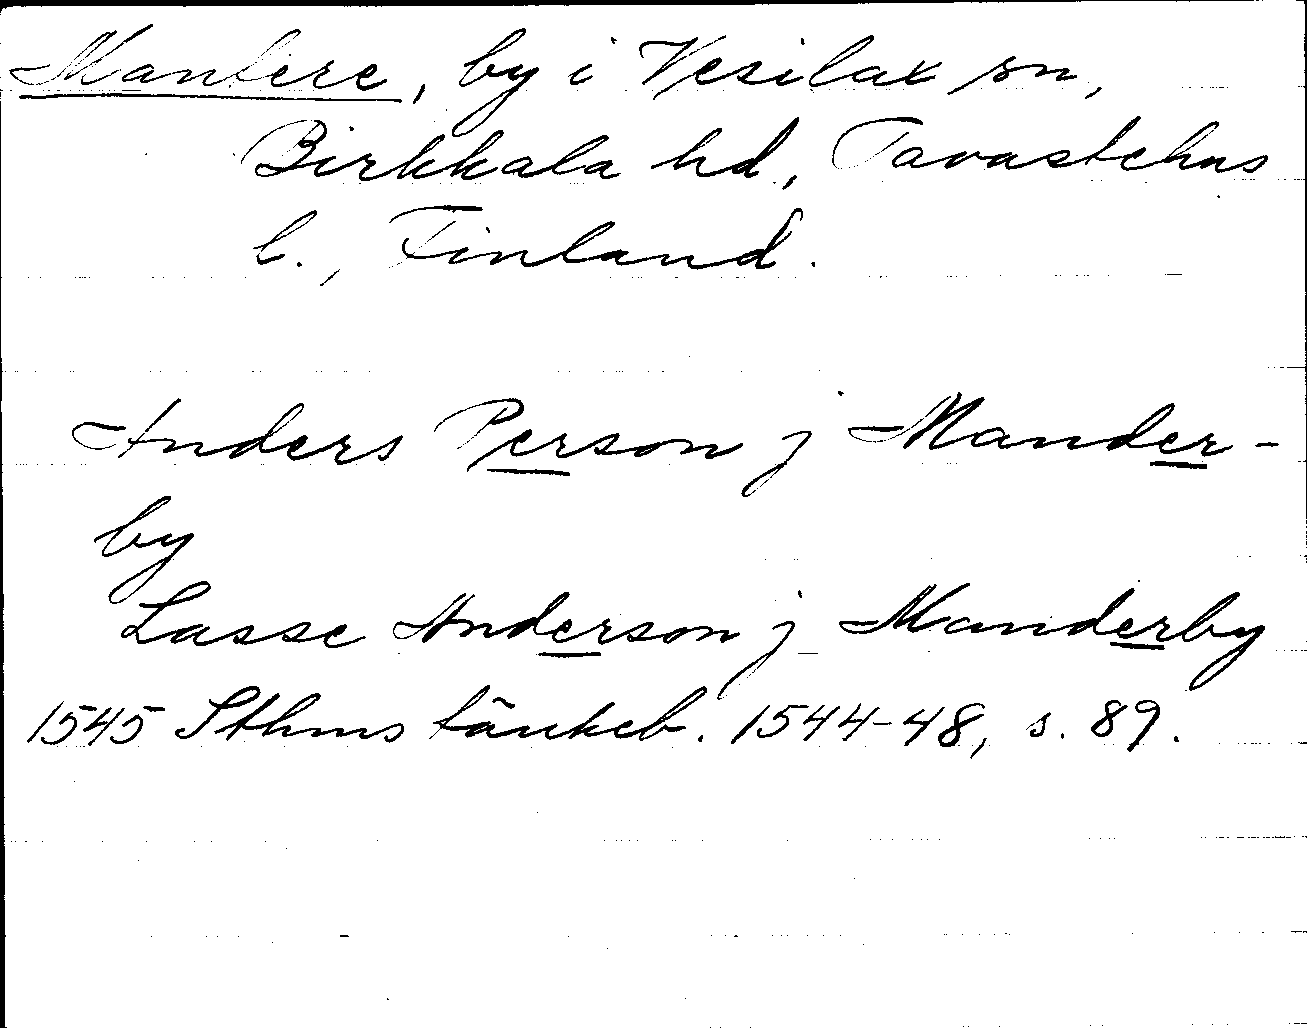 Mantere, by i Vesilax sn,
Birkkala hd, Tavastehus
l., Finland.
Anders Person j Mander-
by
Lasse Anderson j Manderby
1545 Sthms tänkeb. 1544-48, s. 89.